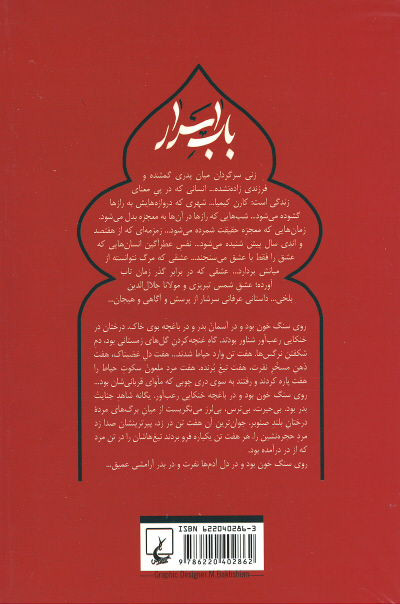 باب اسرار
زنی سرگردان میان پدری گمشده و
فرزندی زاده‌نشده... انسانی که در پی معنای
زندگی است؛ کارن کیمیا... شهری که دروازه‌هایش به رازها
گشوده می‌شود... شب‌هایی که رازها در آن‌ها به معجزه بدل می‌شود،
زمان‌هایی که معجزه حقیقت شمرده می‌شود... زمزمه‌ای که از هفتصد
و اندی سال پیش شنیده می‌شود... نفس عطرآگین انسان‌هایی که
عشق را فقط با عشق می‌سنجند... عشقی که مرگ نتوانسته از
میانش بردارد... عشقی که در برابر گذر زمان تاب
آورده؛ عشق شمس تبریزی و مولانا جلال‌الدین
بلخی... داستانی عرفانی سرشار از پرسش و آگاهی و هیجان...
روی سنگ خون بود و در آسمان بدر و در باغچه بوی خاک. درختان در
خنکایی رعب‌آور شناور بودند. گاه غنچه‌کردنِ گل‌های زمستانی بود، دم
شکفتن نرگس‌ها. هفت تن وارد حیاط شدند... هفت دلِ غضبناک، هفت
ذهنِ مسخّرِ نفرت، هفت تیغ بُرنده. هفت مرد ملعون سکوتِ حیاط را
هفت پاره کردند و رفتند به سوی دری چوبی که مأوای قربانی‌شان بود...
روی سنگ خون بود و در باغچه خنکایی رعب‌آور. یگانه شاهدِ جنایت
بدر بود. بی‌حیرت، بی‌ترس، بی‌لرز می‌نگریست از میانِ برگ‌های مردهٔ
درختانِ بلند صنوبر. جوان‌ترین آن هفت تن در زد، پیرترینشان صدا زد
مرد حجره‌نشین را. هر هفت تن یکباره فرو بردند تیغ‌هاشان را در تن مرد
که از در درآمده بود.
روی سنگ خون بود و در دل آدم‌ها نفرت و در بدر آرامشی عمیق...
ISBN 622040286-3
9 786220 402862
Graphic Designer.M.Bakhshian